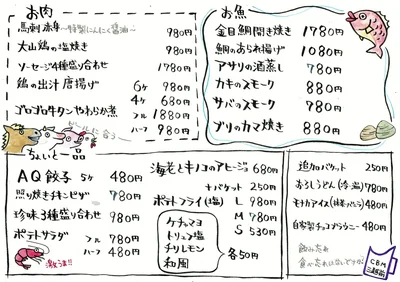 お肉
馬刺 赤身 ～特製にんにく醤油～ 980円
大山鶏の塩焼き 980円
ソーセージ4種盛り合わせ 1780円
鶏の出汁唐揚げ 6ヶ 980円
4ヶ 680円
ゴロゴロ牛タンやわらか煮 フル 1880円
ハーフ 980円
ビールに合う
お魚
金目鯛開き焼き 1780円
鯛のあられ揚げ 1080円
アサリの酒蒸し 780円
カキのスモーク 880円
サバのスモーク 780円
ブリのカマ焼き 880円
ちょいと一品
AQ餃子 5ヶ 480円
照り焼きチキンピザ 780円
珍味3種盛り合わせ 980円
ポテトサラダ フル 780円
ハーフ 480円
激うま!!
海老とキノコのアヒージョ 680円
+バケット 250円
ポテトフライ(塩) L 980円
M 780円
S 530円
ケチャマヨ
トリュフ塩
チリレモン
和風
各50円
追加バケット 250円
おろしうどん(冷・温) 780円
モナカアイス(抹茶・バニラ) 480円
自家製チョコブラウニー 480円
飲み忘れ
食べ忘れはないですか?
CBM
三越前